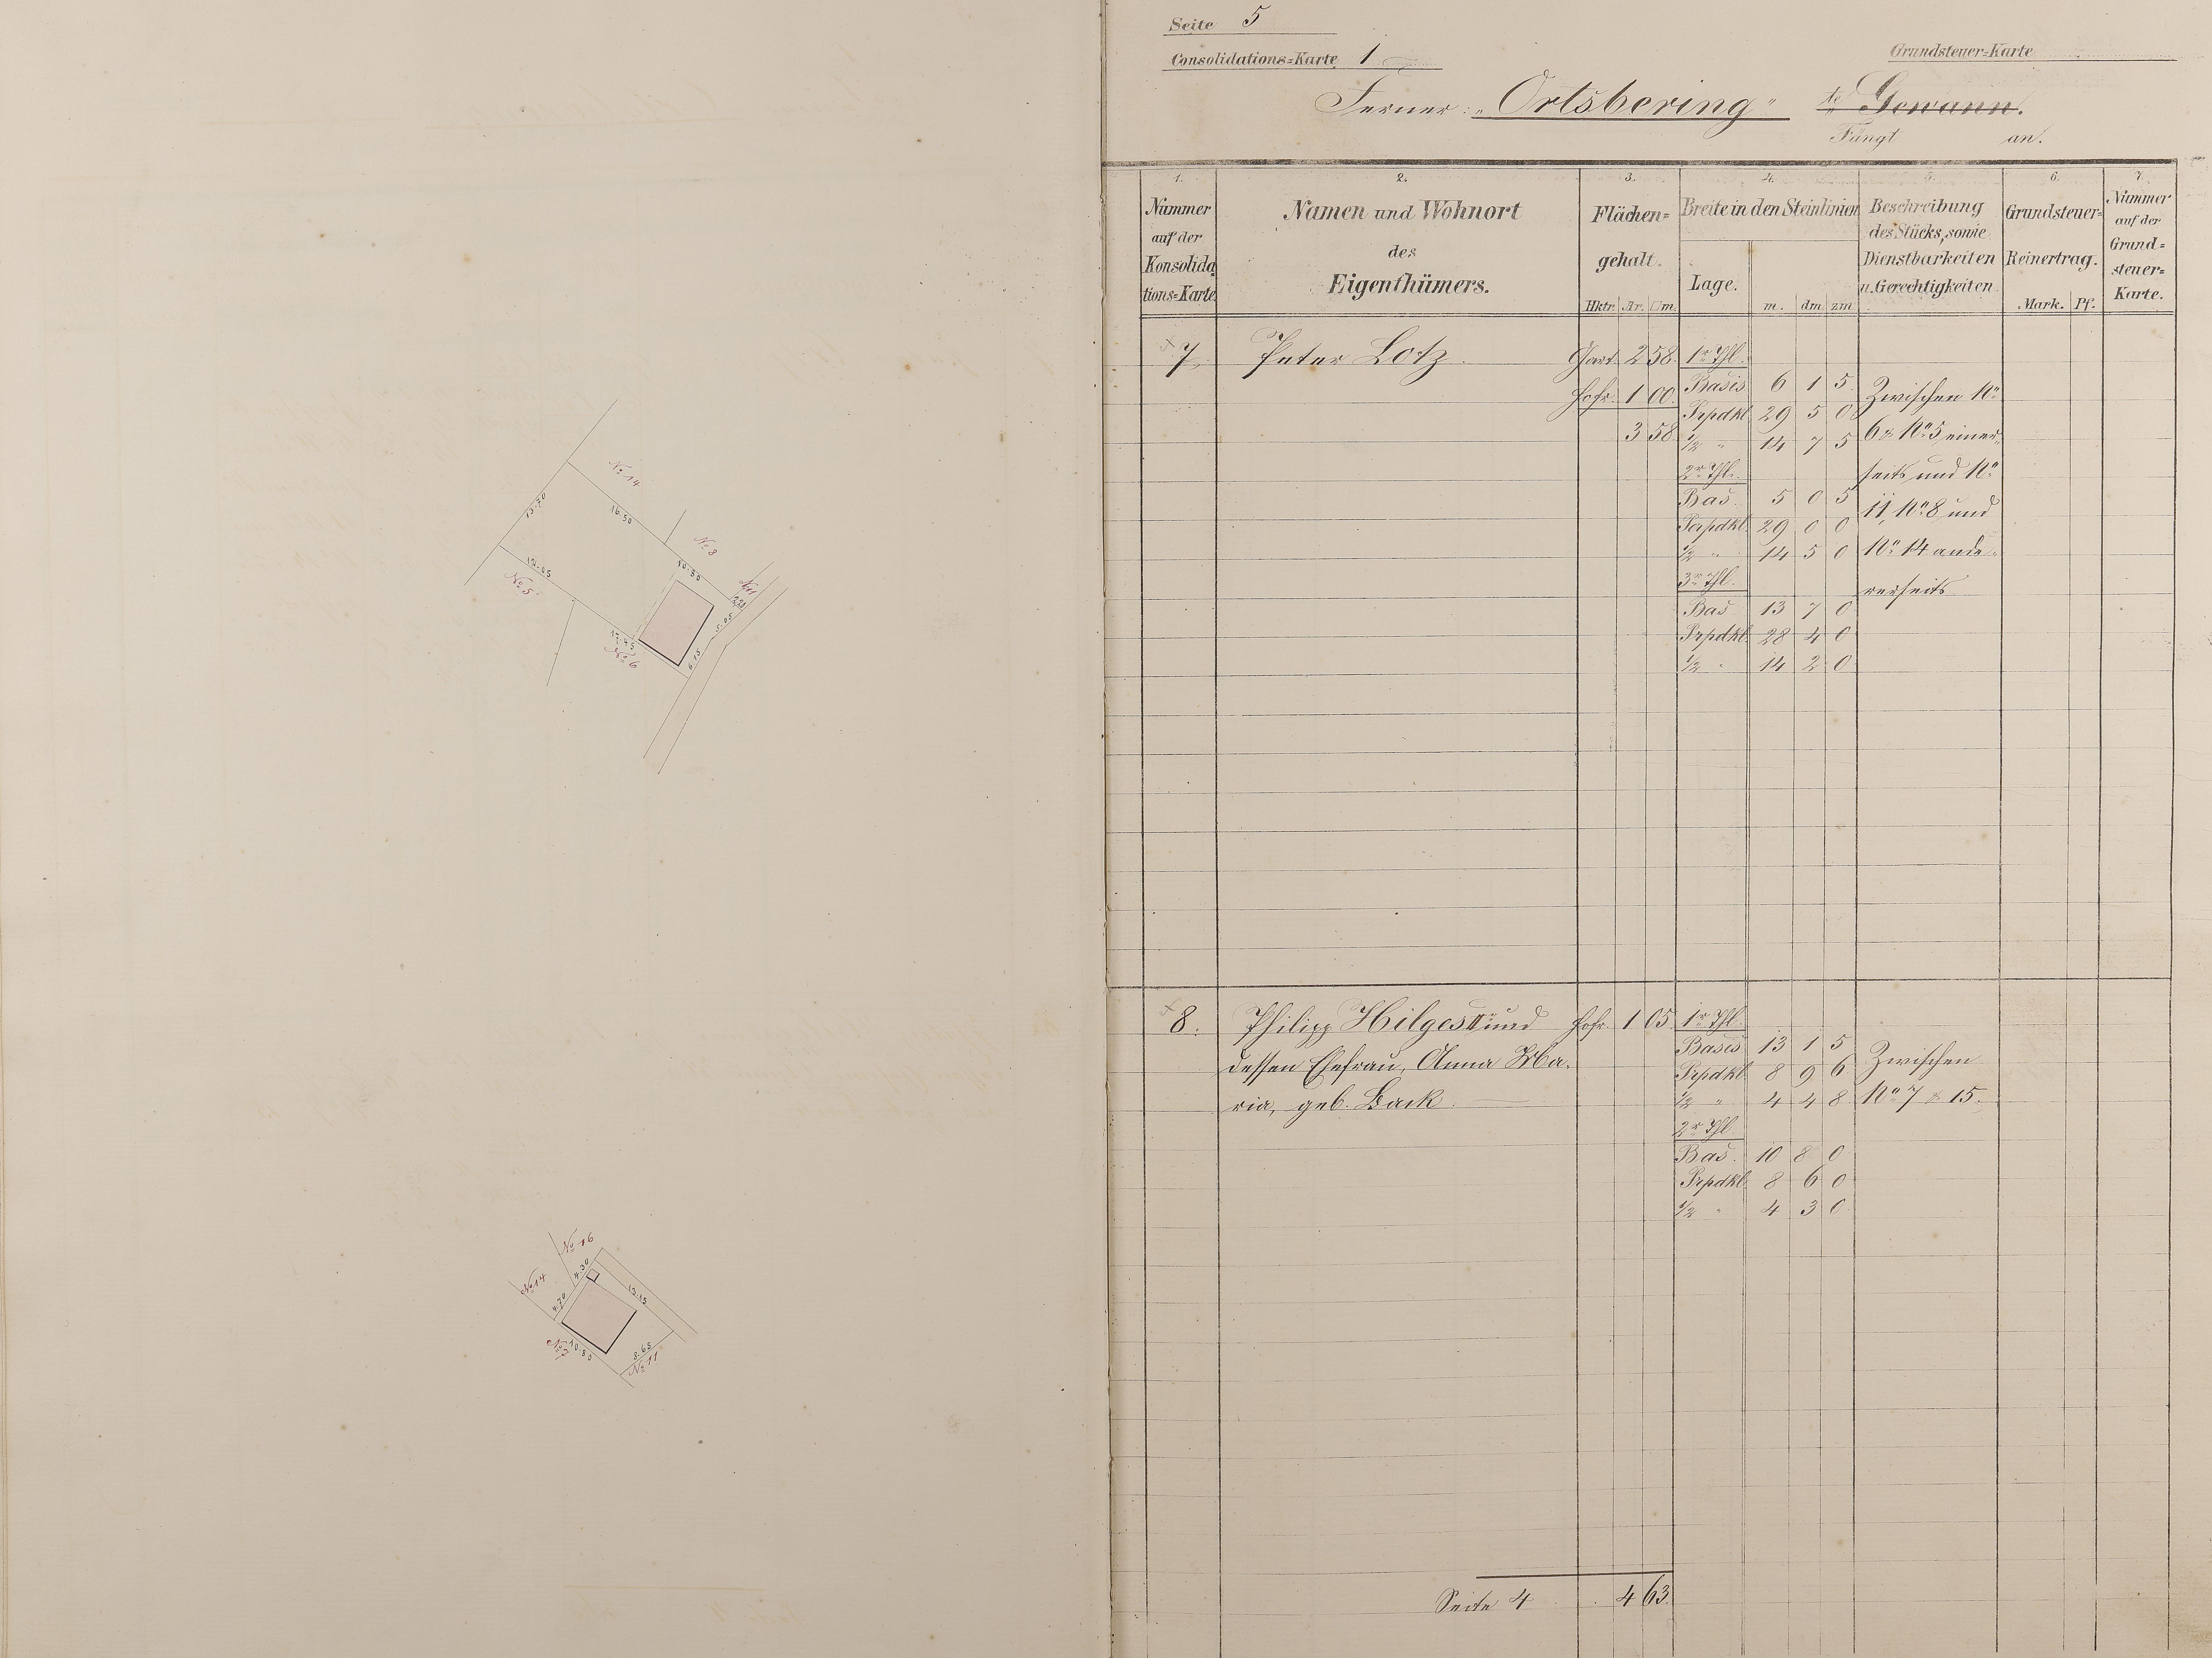 No 14
13.70
16.50
No 8
12.05
No 5
10.50
No 11
2.20
5.05
17.45
No 6
6.15
No 16
No 14
4.30
13.15
4.70
No 7
10.80
8.65
No 11
Seite 5
Consolidations=Karte 1
Grundsteuer=Karte
Ferner: „Ortsbering“ te Gewann.
Fängt an.
1. 2. 3. 4. 5. 6. 7.
Nummer auf der Konsolida=tions=Karte.
Namen und Wohnort
des
Eigenthümers.
Flächen=
gehalt.
Hktr. Ar. □m.
Breite in den Steinlinien
Lage. m. dm zm
Beschreibung
des Stücks, sowie
Dienstbarkeiten
u. Gerechtigkeiten.
Grundsteuer=
Reinertrag.
Mark. Pf.
Nummer
auf der
Grund=
steuer=
Karte.
7 Peter Lotz. Gart. 2 58. 1r Thl.
Basis 6 1 5. Zwischen No
Hofr. 1 00. Prpdkl 29 5 0
3 58 1/2 " 14 7 5 6 & No 5 einer=
2r Thl. seits und No
Bas. 5 0 5 11, No 8 und
Prpdkl. 29 0 0
1/2 " 14 5 0 No 14 ande=
3r Thl. rerseits
Bas 13 7 0
Prpdkl. 28 4 0
1/2 " 14 2 0
8. Philipp Hilges IIr und Hofr. 1 05. 1r Thl.
Basis 13 1 5 Zwischen
dessen Ehefrau, Anna Ma=
Prpdkl 8 9 6
ria, geb. Back. 1/2 " 4 4 8. No 7 & 15.
2r Thl
Bas. 10 8 0
Prpdkl. 8 6 0
1/2 " 4 3 0
Seite 4 4 63.